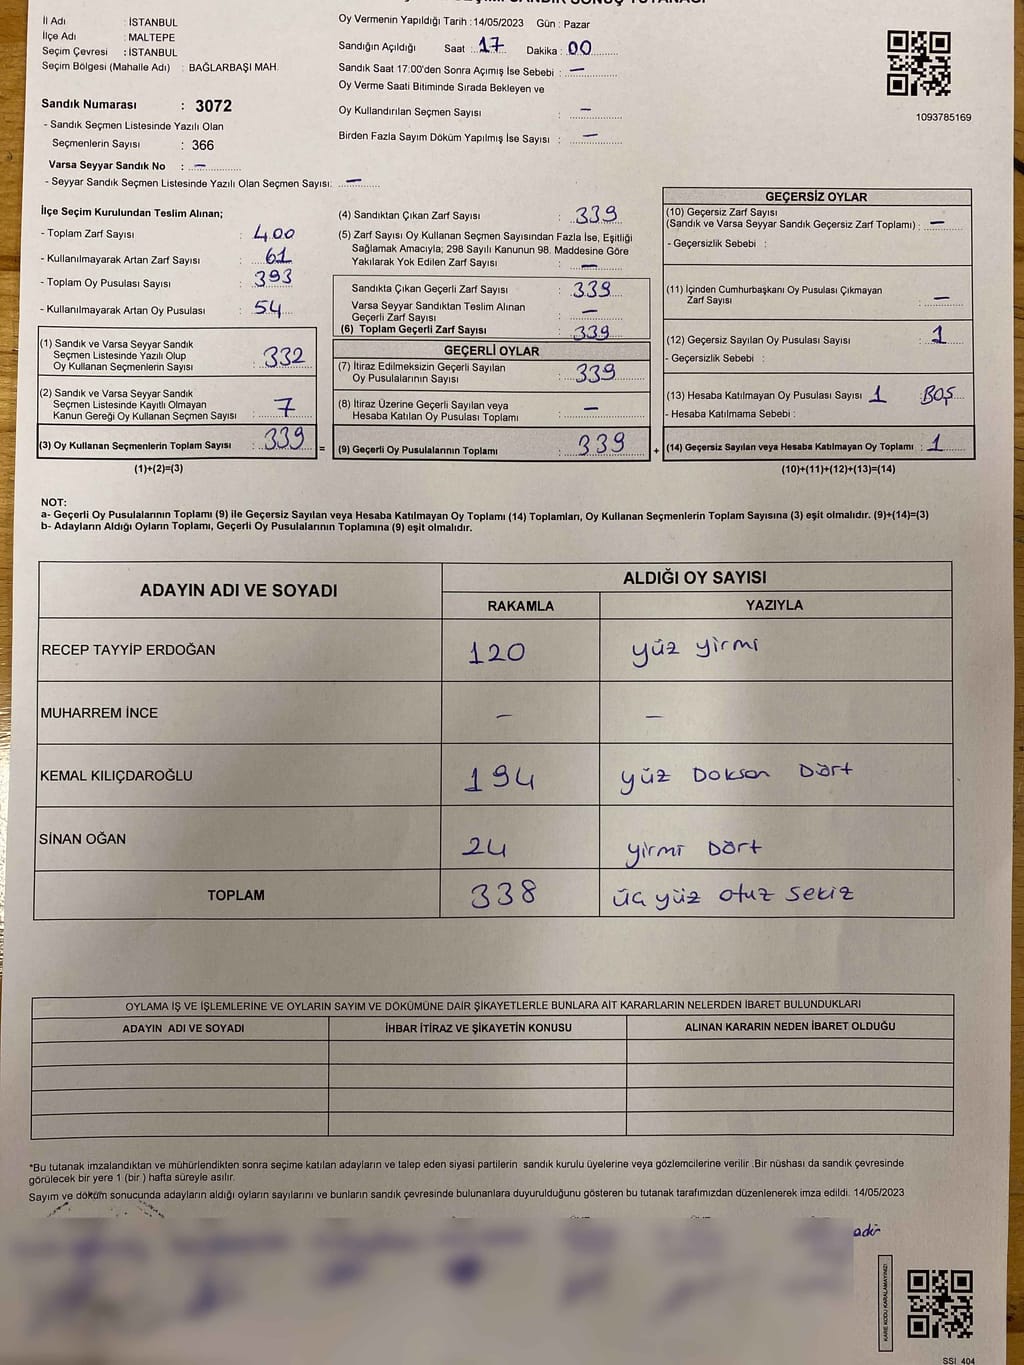 İl Adı : İSTANBUL
İlçe Adı : MALTEPE
Seçim Çevresi : İSTANBUL
Seçim Bölgesi (Mahalle Adı) : BAĞLARBAŞI MAH.
Sandık Numarası : 3072
- Sandık Seçmen Listesinde Yazılı Olan
Seçmenlerin Sayısı : 366
Varsa Seyyar Sandık No : –
- Seyyar Sandık Seçmen Listesinde Yazılı Olan Seçmen Sayısı: –
Oy Vermenin Yapıldığı Tarih : 14/05/2023 Gün : Pazar
Sandığın Açıldığı Saat : 17 Dakika : 00
Sandık Saat 17:00'den Sonra Açımış İse Sebebi : –
Oy Verme Saati Bitiminde Sırada Bekleyen ve
Oy Kullandırılan Seçmen Sayısı : –
Birden Fazla Sayım Döküm Yapılmış İse Sayısı : –
1093785169
İlçe Seçim Kurulundan Teslim Alınan;
- Toplam Zarf Sayısı : 400
- Kullanılmayarak Artan Zarf Sayısı : 61
- Toplam Oy Pusulası Sayısı : 393
- Kullanılmayarak Artan Oy Pusulası : 54
(1) Sandık ve Varsa Seyyar Sandık
Seçmen Listesinde Yazılı Olup
Oy Kullanan Seçmenlerin Sayısı : 332
(2) Sandık ve Varsa Seyyar Sandık
Seçmen Listesinde Kayıtlı Olmayan
Kanun Gereği Oy Kullanan Seçmen Sayısı : 7
(3) Oy Kullanan Seçmenlerin Toplam Sayısı : 339 =
(1)+(2)=(3)
(4) Sandıktan Çıkan Zarf Sayısı : 339
(5) Zarf Sayısı Oy Kullanan Seçmen Sayısından Fazla İse, Eşitliği
Sağlamak Amacıyla; 298 Sayılı Kanunun 98. Maddesine Göre
Yakılarak Yok Edilen Zarf Sayısı : –
Sandıkta Çıkan Geçerli Zarf Sayısı : 339
Varsa Seyyar Sandıktan Teslim Alınan
Geçerli Zarf Sayısı : –
(6) Toplam Geçerli Zarf Sayısı : 339
GEÇERLİ OYLAR
(7) İtiraz Edilmeksizin Geçerli Sayılan
Oy Pusulalarının Sayısı : 339
(8) İtiraz Üzerine Geçerli Sayılan veya
Hesaba Katılan Oy Pusulası Toplamı : –
(9) Geçerli Oy Pusulalarının Toplamı : 339 +
GEÇERSİZ OYLAR
(10) Geçersiz Zarf Sayısı
(Sandık ve Varsa Seyyar Sandık Geçersiz Zarf Toplamı) : –
- Geçersizlik Sebebi :
(11) İçinden Cumhurbaşkanı Oy Pusulası Çıkmayan
Zarf Sayısı : –
(12) Geçersiz Sayılan Oy Pusulası Sayısı : 1
- Geçersizlik Sebebi :
(13) Hesaba Katılmayan Oy Pusulası Sayısı 1 : BOŞ
- Hesaba Katılmama Sebebi :
(14) Geçersiz Sayılan veya Hesaba Katılmayan Oy Toplamı : 1
(10)+(11)+(12)+(13)=(14)
NOT:
a- Geçerli Oy Pusulalarının Toplamı (9) ile Geçersiz Sayılan veya Hesaba Katılmayan Oy Toplamı (14) Toplamları, Oy Kullanan Seçmenlerin Toplam Sayısına (3) eşit olmalıdır. (9)+(14)=(3)
b- Adayların Aldığı Oyların Toplamı, Geçerli Oy Pusulalarının Toplamına (9) eşit olmalıdır.
ADAYIN ADI VE SOYADI ALDIĞI OY SAYISI
RAKAMLA YAZIYLA
RECEP TAYYİP ERDOĞAN 120 yüz yirmi
MUHARREM İNCE – –
KEMAL KILIÇDAROĞLU 194 yüz Doksan Dört
SİNAN OĞAN 24 yirmi Dört
TOPLAM 338 üç yüz otuz sekiz
OYLAMA İŞ VE İŞLEMLERİNE VE OYLARIN SAYIM VE DÖKÜMÜNE DAİR ŞİKAYETLERLE BUNLARA AİT KARARLARIN NELERDEN İBARET BULUNDUKLARI
ADAYIN ADI VE SOYADI İHBAR İTİRAZ VE ŞİKAYETİN KONUSU ALINAN KARARIN NEDEN İBARET OLDUĞU
*Bu tutanak imzalandıktan ve mühürlendikten sonra seçime katılan adayların ve talep eden siyasi partilerin sandık kurulu üyelerine veya gözlemcilerine verilir .Bir nüshası da sandık çevresinde
görülecek bir yere 1 (bir ) hafta süreyle asılır.
Sayım ve döküm sonucunda adayların aldığı oyların sayılarını ve bunların sandık çevresinde bulunanlara duyurulduğunu gösteren bu tutanak tarafımızdan düzenlenerek imza edildi. 14/05/2023
KARE KODU KARALAMAYINIZ!
SSI 404